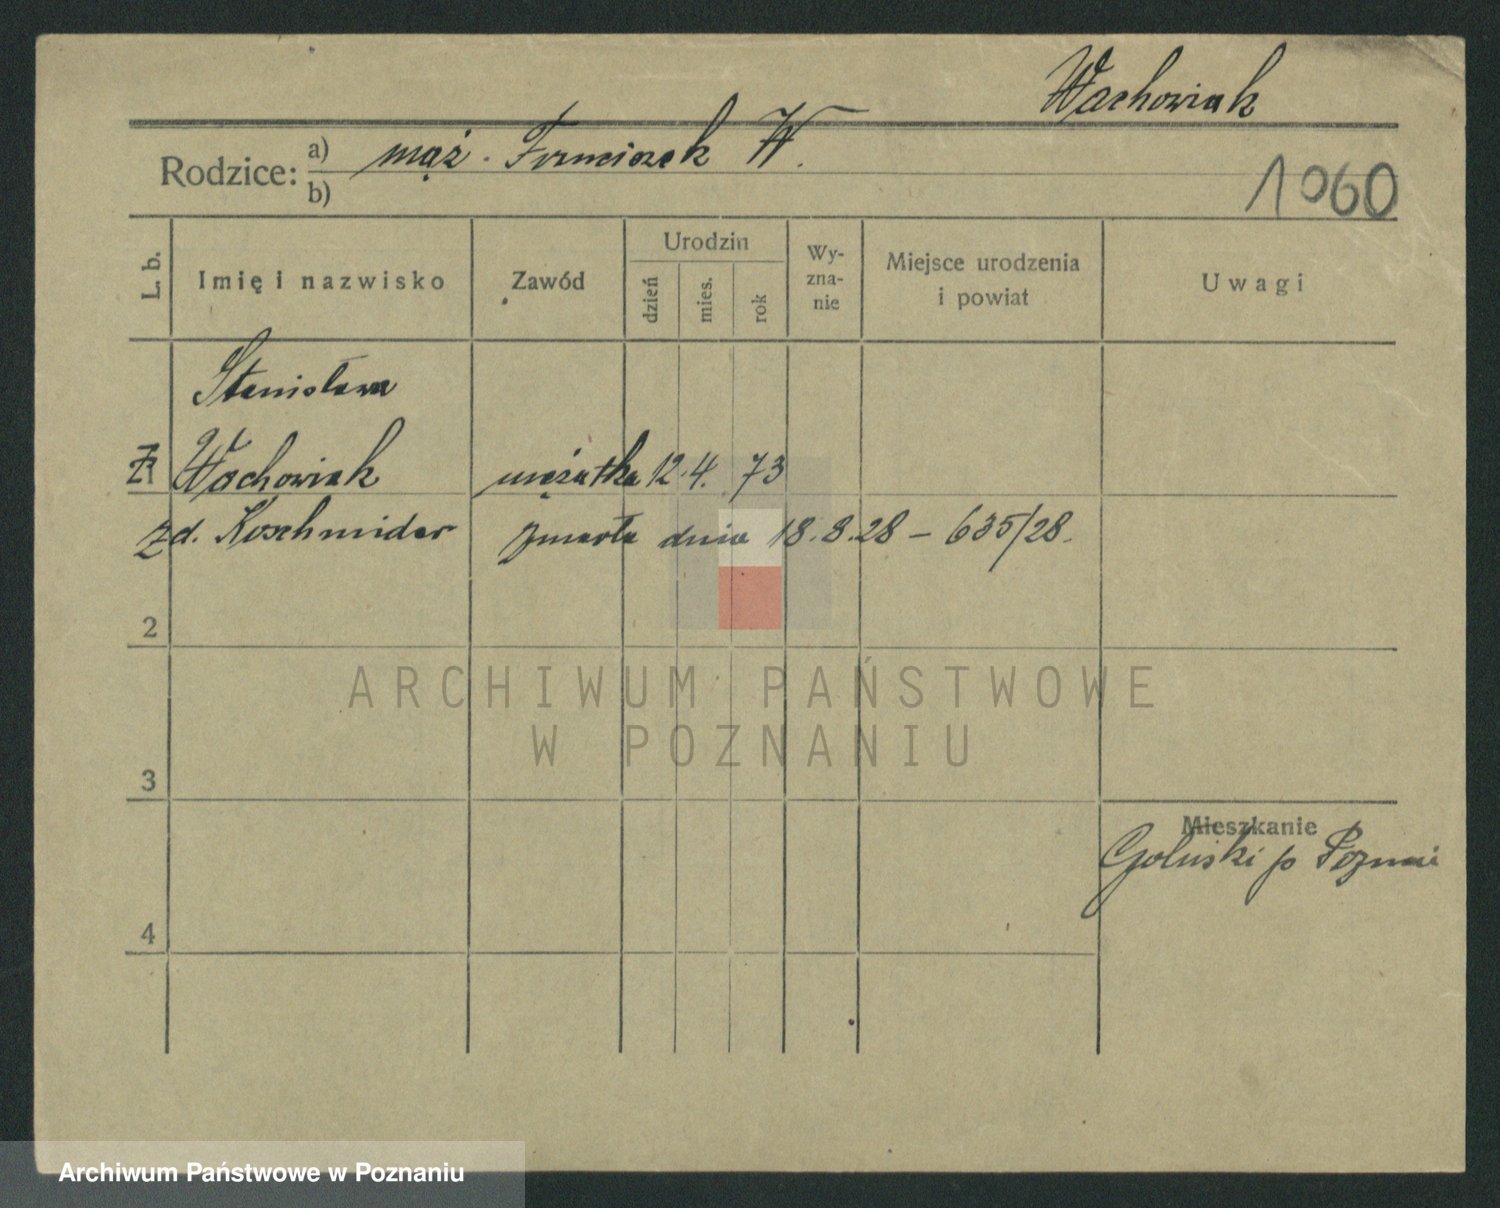 Wachowiak
Rodzice: a) mąż. Franciszek W.
b)
1060
L. b.
Imię i nazwisko
Zawód
Urodzin
dzień
mies.
rok
Wy-
zna-
nie
Miejsce urodzenia
i powiat
Uwagi
Stanisława
Wachowiak mężatka 12.4. 73
zd. Koschmider zmarła dnia 18.8.28 – 635/28.
2
3
4
Mieszkanie
p Poznań
ARCHIWUM PAŃSTWOWE
W POZNANIU
Archiwum Państwowe w Poznaniu